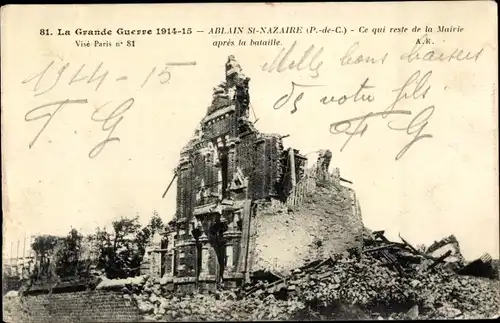 81. La Grande Guerre 1914-15 — ABLAIN St-NAZAIRE (P.-de-C.) - Ce qui reste de la Mairie
Visé Paris n° 81 après la bataille. A. R.
1914-15 Mille bons baisers
T G de votre fils
T G